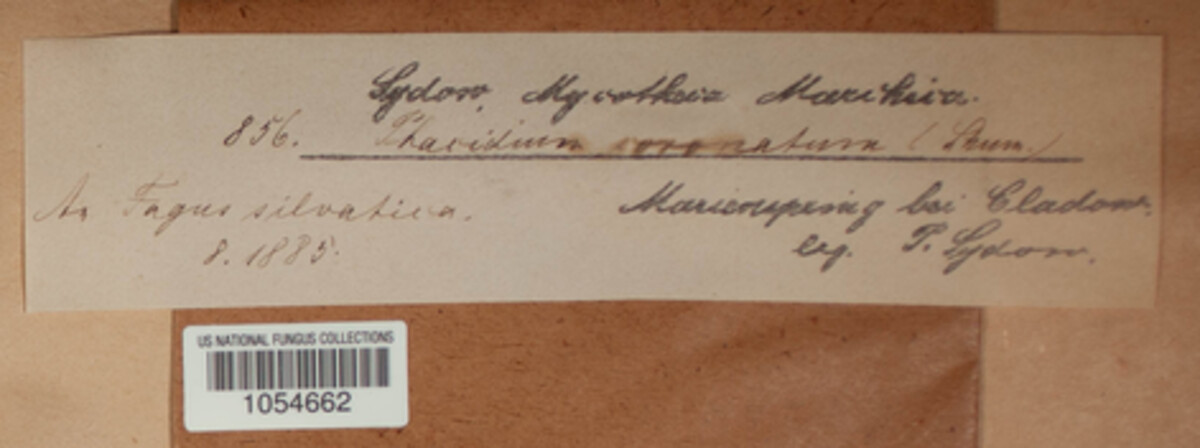 Sydow, Mycotheca Marchica.
856. Phacidium coronatum (Schum.)
An Fagus silvatica. Marienspring bei Cladow.
8. 1885. leg. P. Sydow.
US NATIONAL FUNGUS COLLECTIONS
1054662